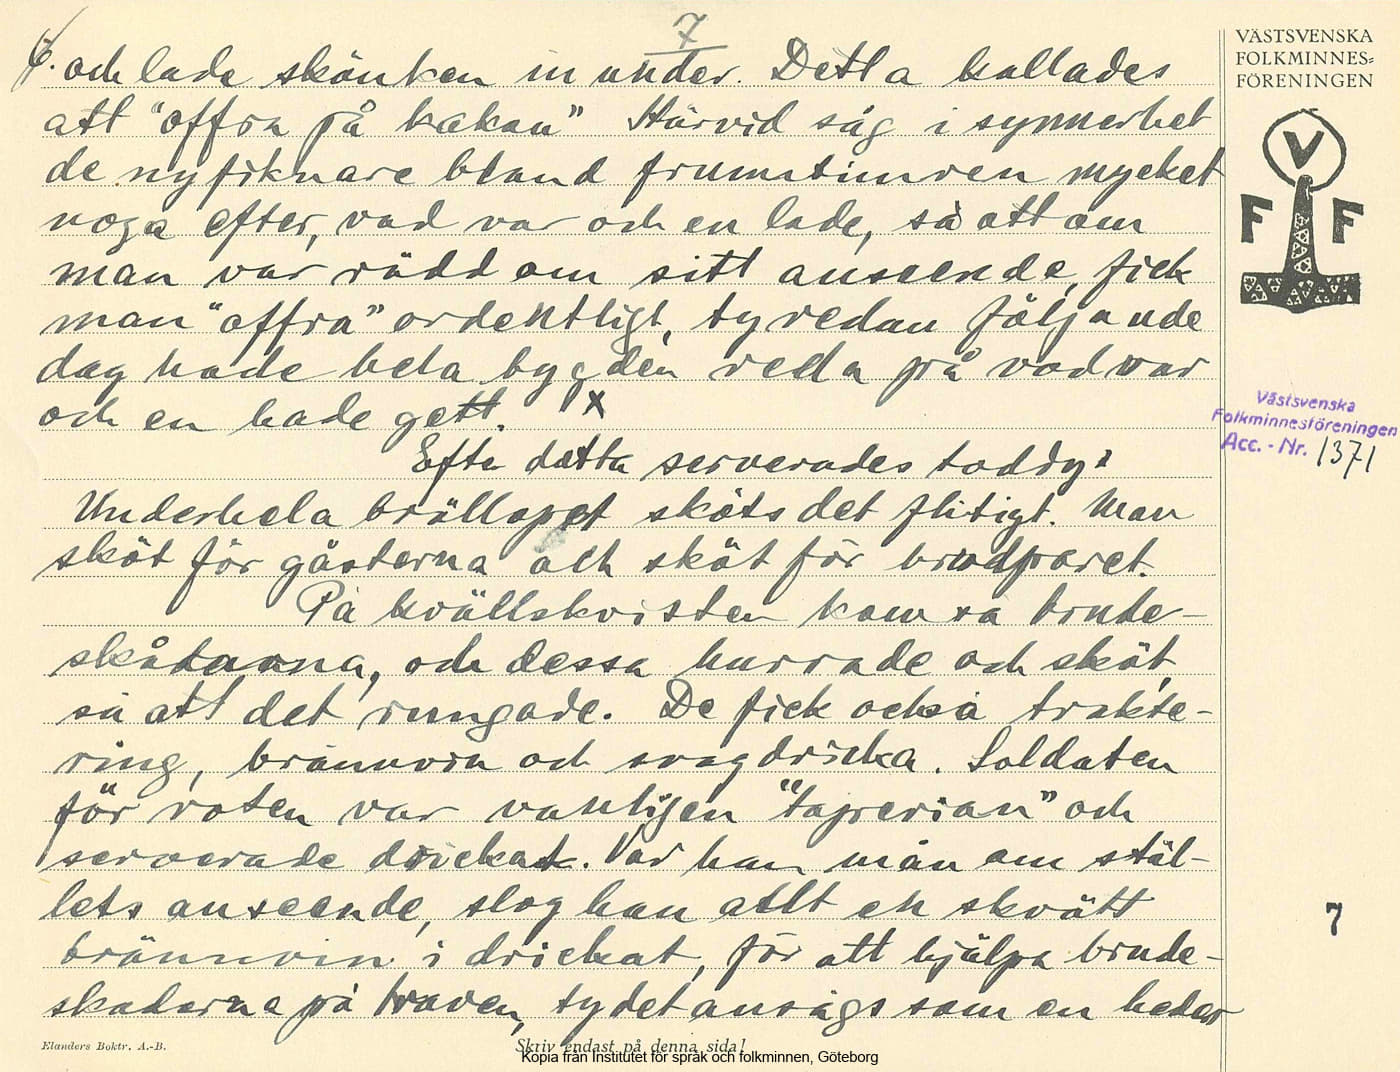 7
6. och lade skänken in under. Detta kallades
att "offra på kakan" Härvid såg i synnerhet
de nyfiknare bland fruntimren mycket
noga efter, vad var och en lade, så att om
man var rädd om sitt anseende, fick
man "offra" ordentligt, ty redan följande
dag hade hela bygden reda på vad var
och en hade gett. x
Efter detta serverades toddy.
Under hela bröllopet sköts det flitigt. Man
sköt för gästerna och sköt för brudparet.
På kvällskvisten kom så brude-
skådarna, och dessa hurrade och sköt,
så att det rungade. De fick också trakte-
ring, brännvin och svagdricka. Soldaten
för roten var vanligen "taprerian" och
serverade drickat. Var han mån om stäl-
lets anseende, slog han allt en skvätt
brännvin i drickat, för att hjälpa brude-
skadarna på traven, ty det ansågs som en heder
VÄSTSVENSKA
FOLKMINNES=
FÖRENINGEN
V
F F
Västsvenska
Folkminnesföreningen
Acc. - Nr. 1371
7
Elanders Boktr. A.-B.
Skriv endast på denna sida!
Kopia från Institutet för språk och folkminnen, Göteborg